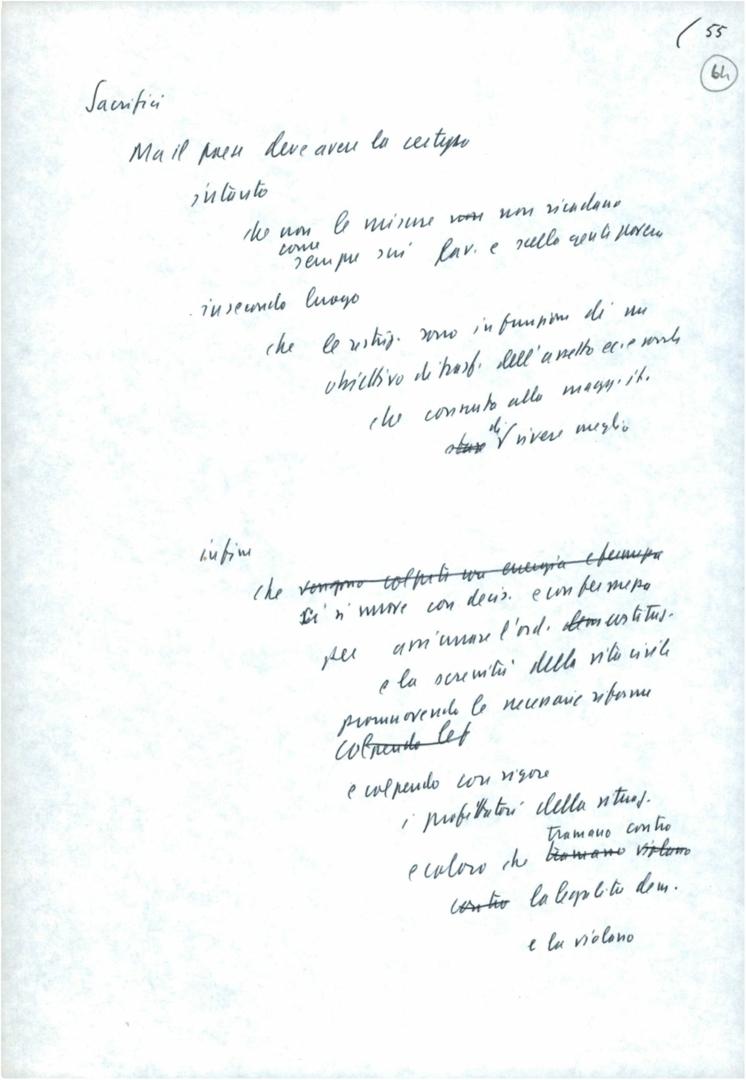 ( 55
64
Sacrifici
Ma il paese deve avere la certezza
intanto
che non le misure non non ricadano
come
sempre sui lav. e sulla gente povera
in secondo luogo
che le restriz. sono in funzione di un
obiettivo di trasf. dell'assetto ec. e sociale
che consenta alla magg. it.
di
stare vivere meglio
infine
che vengono colpiti con energia e fermezza
si muove con decis. e con fermezza
per assicurare l'ord. dem costituz.
e la serenità della vita civile
promuovendo le necessarie riforme
colpendo
e colpendo con rigore
i profittatori della situaz.
tramano contro
e coloro che tramano violano
contro la legalità dem.
e la violano